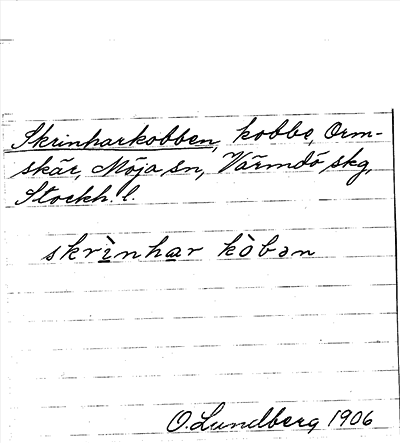 Skrinharkobben, kobbe, Orm-
skär, Möja sn, Värmdö skg,
Stockh. l.
skrìnhar kòbən
O. Lundberg 1906